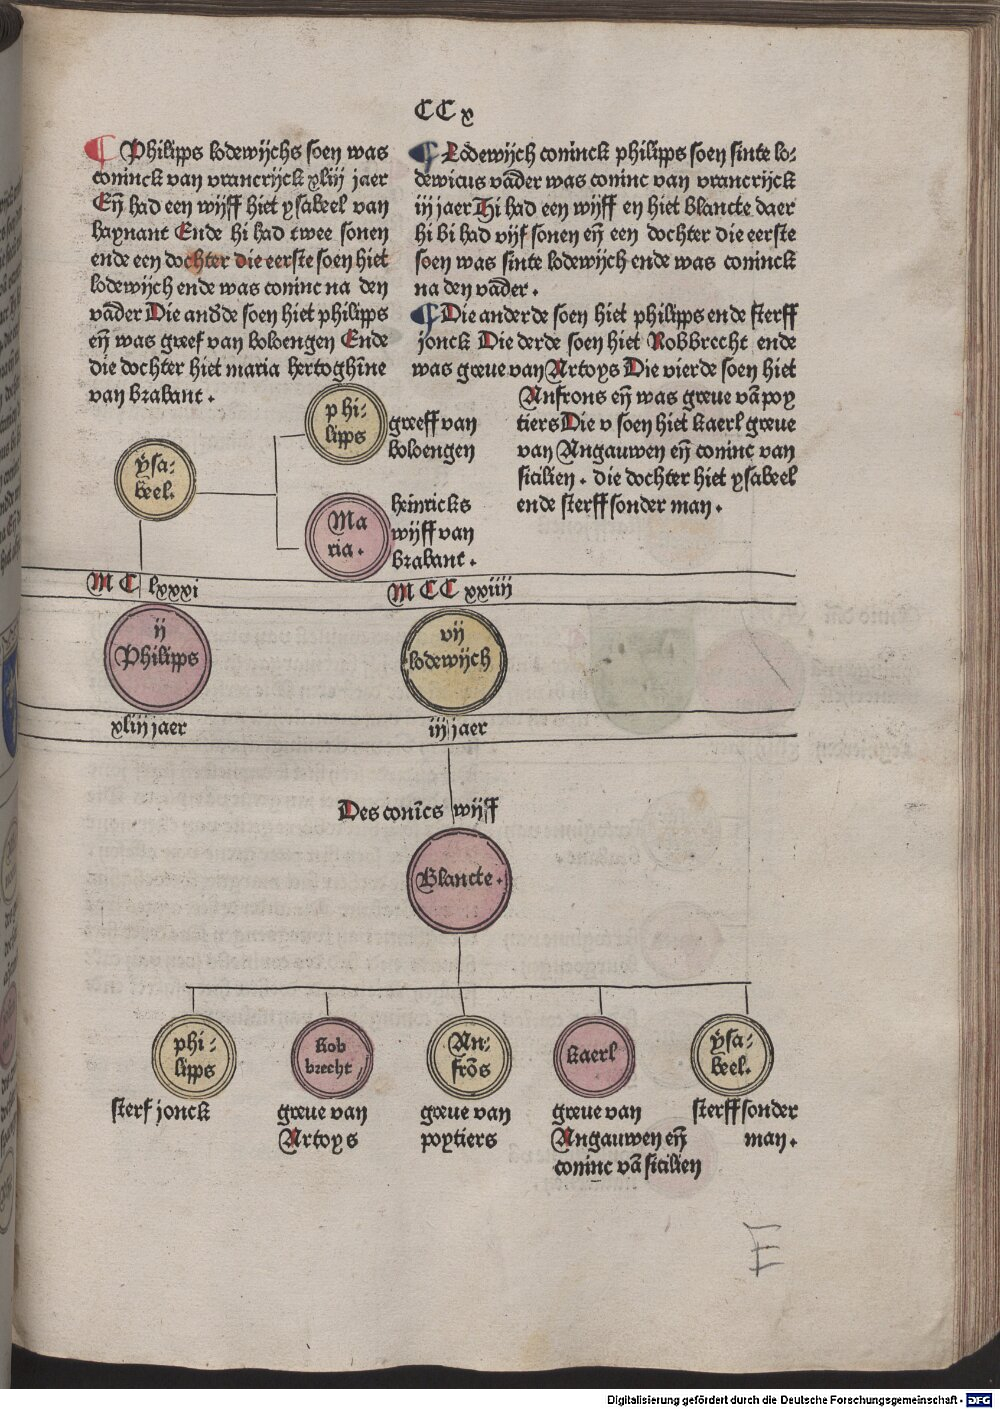 CCx
Philipps lodewijchs soen was
coninck van vrancrijck xliij jaer
Eñ had een wijff hiet ysabeel van
haynant Ende hi had twee sonen
ende een dochter die eerste soen hiet
lodewijch ende was coninc na den
vāder Die andˀde soen hiet philipps
eñ was greef van boloengen Ende
die dochter hiet maria hertoghīne
van brabant.
Lodewijch coninck philipps soen sinte lo-
dewicus vāder was coninc van vrancrijck
iij jaer Hi had een wijff en hiet blancte daer
hi bi had vijf sonen eñ een dochter die eerste
soen was sinte lodewijch ende was coninck
na den vāder.
Die anderde soen hiet philipps ende sterff
jonck Die derde soen hiet Robbrecht ende
was greue van Artoys Die vierde soen hiet
Anfrons eñ was greue vā poy
tiers Die v soen hiet kaerl greue
van Angauwen eñ coninc van
sicilien. die dochter hiet ysabeel
ende sterff sonder man.
phi-
lipps
greeff van
boloengen
ysa-
beel.
Ma
ria.
heinricks
wijff van
brabant.
MC lxxxi
MCC xxiiij
ij
Philipps
vij
lodewijch
xliij jaer
iij jaer
Des conīcs wijff
Blancte.
phi-
lipps
Rob
brecht
An-
frōs
kaerl
ysa-
beel.
sterf jonck
greue van
Artoys
greue van
poytiers
greue van
Angauwen eñ
coninc vā sicilien
sterff sonder
man.
E
Digitalisierung gefördert durch die Deutsche Forschungsgemeinschaft - DFG